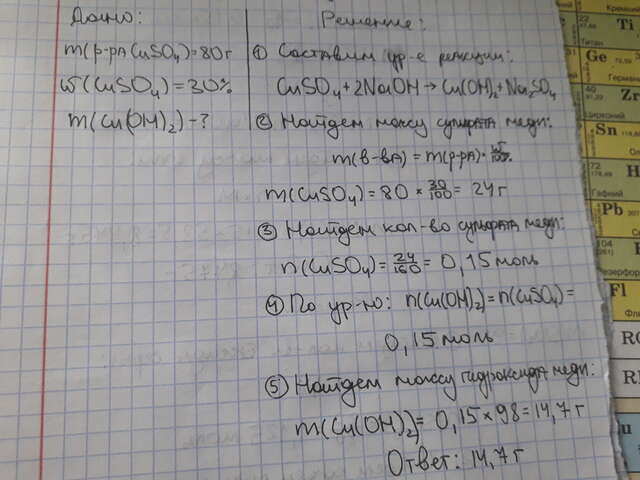 Дано:
m(р-ра CuSO₄)=80г
w(CuSO₄)=30%
m(Cu(OH)₂)-?
Решение:
① Составим ур-е реакции:
CuSO₄+2NaOH→Cu(OH)₂+Na₂SO₄
② Найдем массу сульфата меди:
m(в-ва)=m(р-ра)·w/100%
m(CuSO₄)=80×30/100=24г
③ Найдем кол-во сульфата меди:
n(CuSO₄)=24/160=0,15моль
④ По ур-ю: n(Cu(OH)₂)=n(CuSO₄)=
0,15моль
⑤ Найдем массу гидроксида меди:
m(Cu(OH)₂)=0,15×98=14,7г
Ответ: 14,7г
Кремний
22
Ti
Титан
Ge
Германи
40
Zr
Цирконий
Sn
Оло
72
178,49
Гафний
Pb
104
Резерфор
Fl
Фл